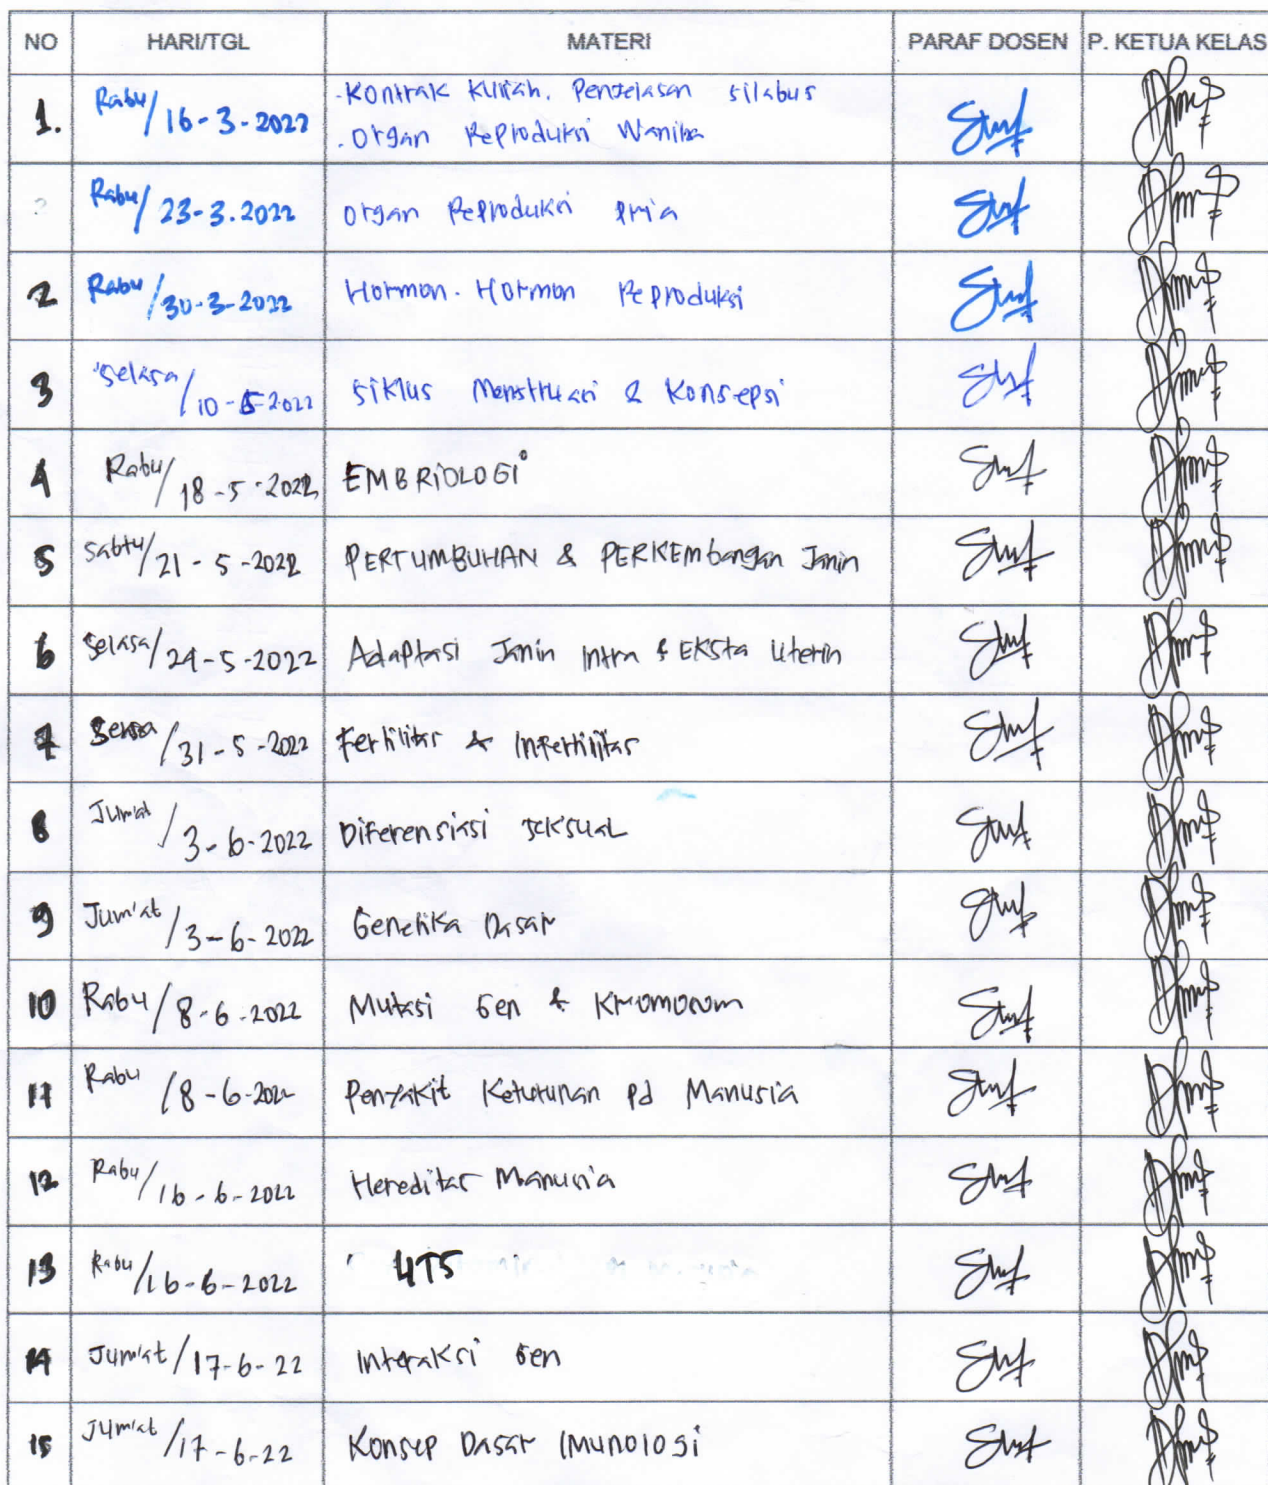 NO HARI/TGL MATERI PARAF DOSEN P. KETUA KELAS
1. Rabu/16-3-2022 -Kontrak Kuliah. Penjelasan silabus
. Organ Reproduksi Wanita
Rabu/23-3.2022 Organ Reproduksi pria
2 Rabu/30-3-2022 Hormon-Hormon Reproduksi
3 Selasa/10-5-2022 Siklus Menstruasi & Konsepsi
4 Rabu/18-5-2022 EMBRIOLOGI
5 Sabtu/21-5-2022 PERTUMBUHAN & PERKEMbangan Janin
6 Selasa/24-5-2022 Adaptasi Janin Intra & EKSta Uterin
7 /31-5-2022 Fertilitas & Infertilitas
8 Jumat/3-6-2022 Diferensiasi seksual
9 Jum'at/3-6-2022 Genetika Dasar
10 Rabu/8-6-2022 Mutasi Gen & Kromosom
11 Rabu/8-6-2022 Penyakit Keturunan pd Manusia
12 Rabu/16-6-2022 Hereditas Manusia
13 Rabu/16-6-2022 UTS
14 Jum'at/17-6-22 Interaksi Gen
15 Jum'at/17-6-22 Konsep Dasar Imunologi